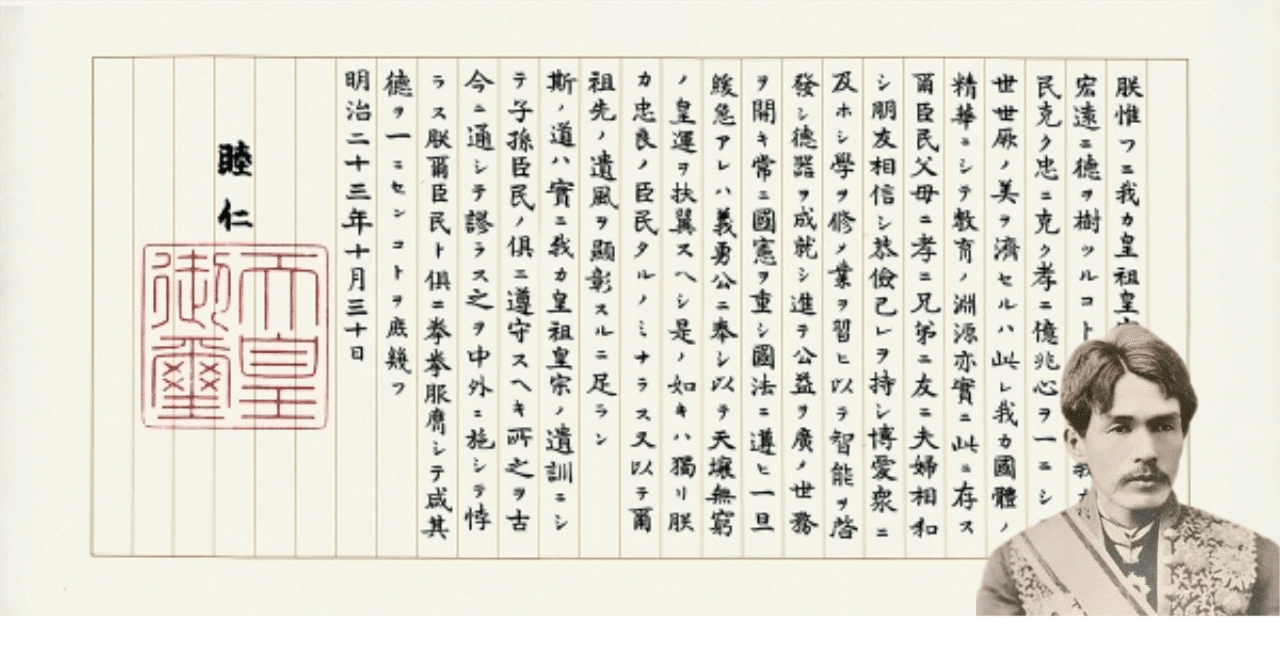 朕惟フニ我カ皇祖皇
宏遠ニ德ヲ樹ツルコト
民克ク忠ニ克ク孝ニ億兆心ヲ一ニシ
世世厥ノ美ヲ濟セルハ此レ我カ國體ノ
精華ニシテ敎育ノ淵源亦實ニ此ニ存ス
爾臣民父母ニ孝ニ兄弟ニ友ニ夫婦相和
シ朋友相信シ恭儉己レヲ持シ博愛衆ニ
及ホシ學ヲ修メ業ヲ習ヒ以テ智能ヲ啓
發シ德器ヲ成就シ進テ公益ヲ廣メ世務
ヲ開キ常ニ國憲ヲ重シ國法ニ遵ヒ一旦
緩急アレハ義勇公ニ奉シ以テ天壤無窮
ノ皇運ヲ扶翼スヘシ是ノ如キハ獨リ朕
カ忠良ノ臣民タルノミナラス又以テ爾
祖先ノ遺風ヲ顯彰スルニ足ラン
斯ノ道ハ實ニ我カ皇祖皇宗ノ遺訓ニシ
テ子孫臣民ノ俱ニ遵守スヘキ所之ヲ古
今ニ通シテ謬ラス之ヲ中外ニ施シテ悖
ラス朕爾臣民ト俱ニ拳拳服膺シテ咸其
德ヲ一ニセンコトヲ庶幾フ
明治二十三年十月三十日
睦仁
天皇
御璽